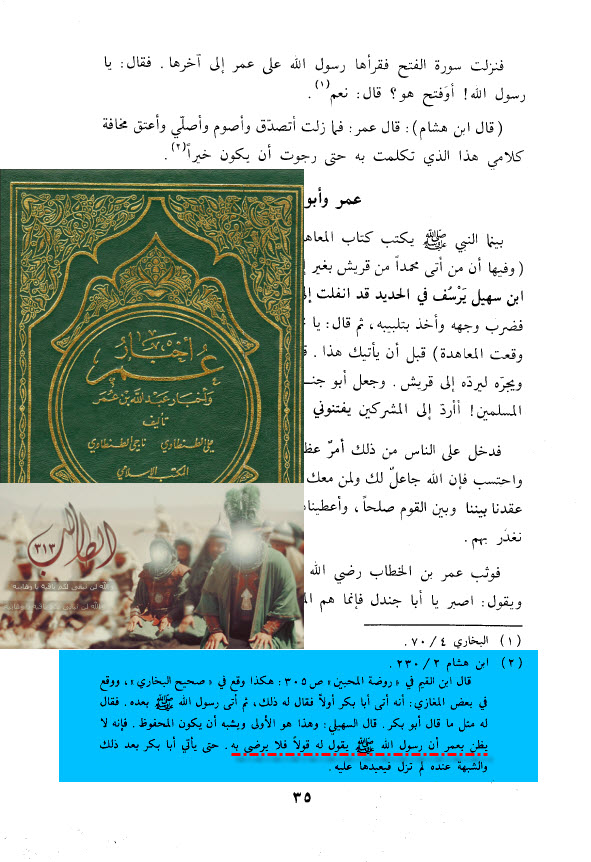 فنزلت سورة الفتح فقرأها رسول الله على عمر إلى آخرها . فقال : يا
رسول الله ! أوَفتح هو ؟ قال : نعم(١) .
( قال ابن هشام ) : قال عمر : فما زلت أتصدّق وأصوم وأصلّي وأعتق مخافة
كلامي هذا الذي تكلمت به حتى رجوت أن يكون خيراً(٢) .
عمر وأبو
بينما النبي ﷺ يكتب كتاب المعاه
( وفيها أن من أتى محمداً من قريش بغير
ابن سهيل يَرْسُف في الحديد قد انفلت إلى
فضرب وجهه وأخذ بتلبيبه ، ثم قال : يا
وقعت المعاهدة ) قبل أن يأتيك هذا .
ويجرّه ليردّه إلى قريش . وجعل أبو جنـ
المسلمين ! أأردّ إلى المشركين يفتنوني
فدخل على الناس من ذلك أمرٌ عظ
واحتسب فإن الله جاعلٌ لك ولمن معك
عقدنا بيننا وبين القوم صلحاً ، وأعطينا
نغدر بهم .
فوثب عمر بن الخطاب رضي الله
ويقول : اصبر يا أبا جندل فإنما هم
أخبار
عمر
وأخبار عبد الله بن عمر
تأليف
علي الطنطاوي ناجي الطنطاوي
المكتب الإسلامي
الطالب
٣١٣
والله لن تبقى لكم باقية يا وهابية
والله لن تبقى لكم باقية يا وهابية
(١) البخاري ٤ / ٧٠ .
(٢) ابن هشام ٢ / ٢٣٠ .
قال ابن القيم في « روضة المحبين » ص ٣٠٥ : هكذا وقع في « صحيح البخاري » ، ووقع
في بعض المغازي : أنه أتى أبا بكر أولاً فقال له ذلك ، ثم أتى رسول الله ﷺ بعده . فقال
له مثل ما قال أبو بكر . قال السهيلي : وهذا هو الأولى ويشبه أن يكون المحفوظ . فإنه لا
يظن بعمر أن رسول الله ﷺ يقول له قولاً فلا يرضى به . حتى يأتي أبا بكر بعد ذلك
والشبهة عنده لم تزل فيعيدها عليه .
٣٥